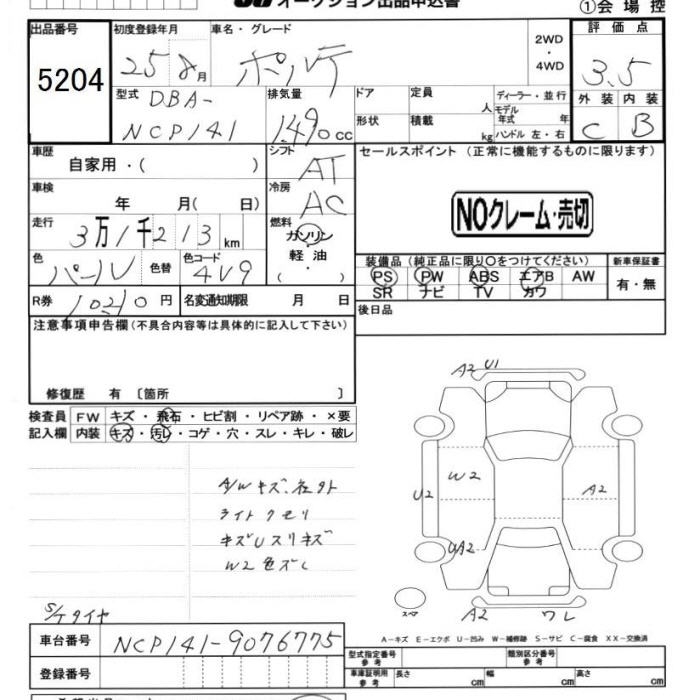 オークション出品申込書
①会場控
出品番号 初度登録年月 車名・グレード 評価点
5204 25 8月 ポルテ 2WD・4WD 3.5
型式 DBA- 排気量 ドア 定員 人 ディーラー・並行 外装 内装
NCP141 1490cc 形状 積載 kg モデル年式 年 ハンドル 左・右 C B
車歴 自家用・( ) シフト AT セールスポイント (正常に機能するものに限ります)
車検 年 月( 日) 冷房 AC
NOクレーム・売切
走行 3万1千213km 燃料 ガソリン・軽油・( )
色 パール 色替 色コード 4V9
装備品(純正品に限り○をつけてください) 新車保証書
PS PW ABS エアB AW 有・無
SR ナビ TV カワ
R券 10210円 名変通知期限 月 日
後日品
注意事項申告欄(不具合内容等は具体的に記入して下さい)
修復歴 有 〔箇所 〕
検査員 FW キズ・飛石・ヒビ割・リペア跡・×要
記入欄 内装 キズ・汚レ・コゲ・穴・スレ・キレ・破レ
A2 U1
W2
U2
A2
UA2
スペア
A2 ワレ
A/Wキズ、社外
ライトクモリ
キズUスリキズ
W2色ズレ
S/Tタイヤ
A−キズ E−エクボ U−凹み W−補修跡 S−サビ C−腐食 XX−交換済
車台番号 NCP141-9076775
型式指定番号 参考 類別区分番号 参考
登録番号
車庫証明用 参考 長さ cm 幅 cm 高さ cm